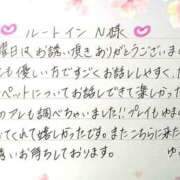 ルートイン N様
曜日はお誘い頂きありがとうございま
も優しい方ですごくお話ししやすく、た
ペットについてお話しできて楽しかった
のアレも調べちゃいました!!プレイもゆ
てくれて嬉しかったです。またこちらに来た
誘いお待ちしております。 ゆ